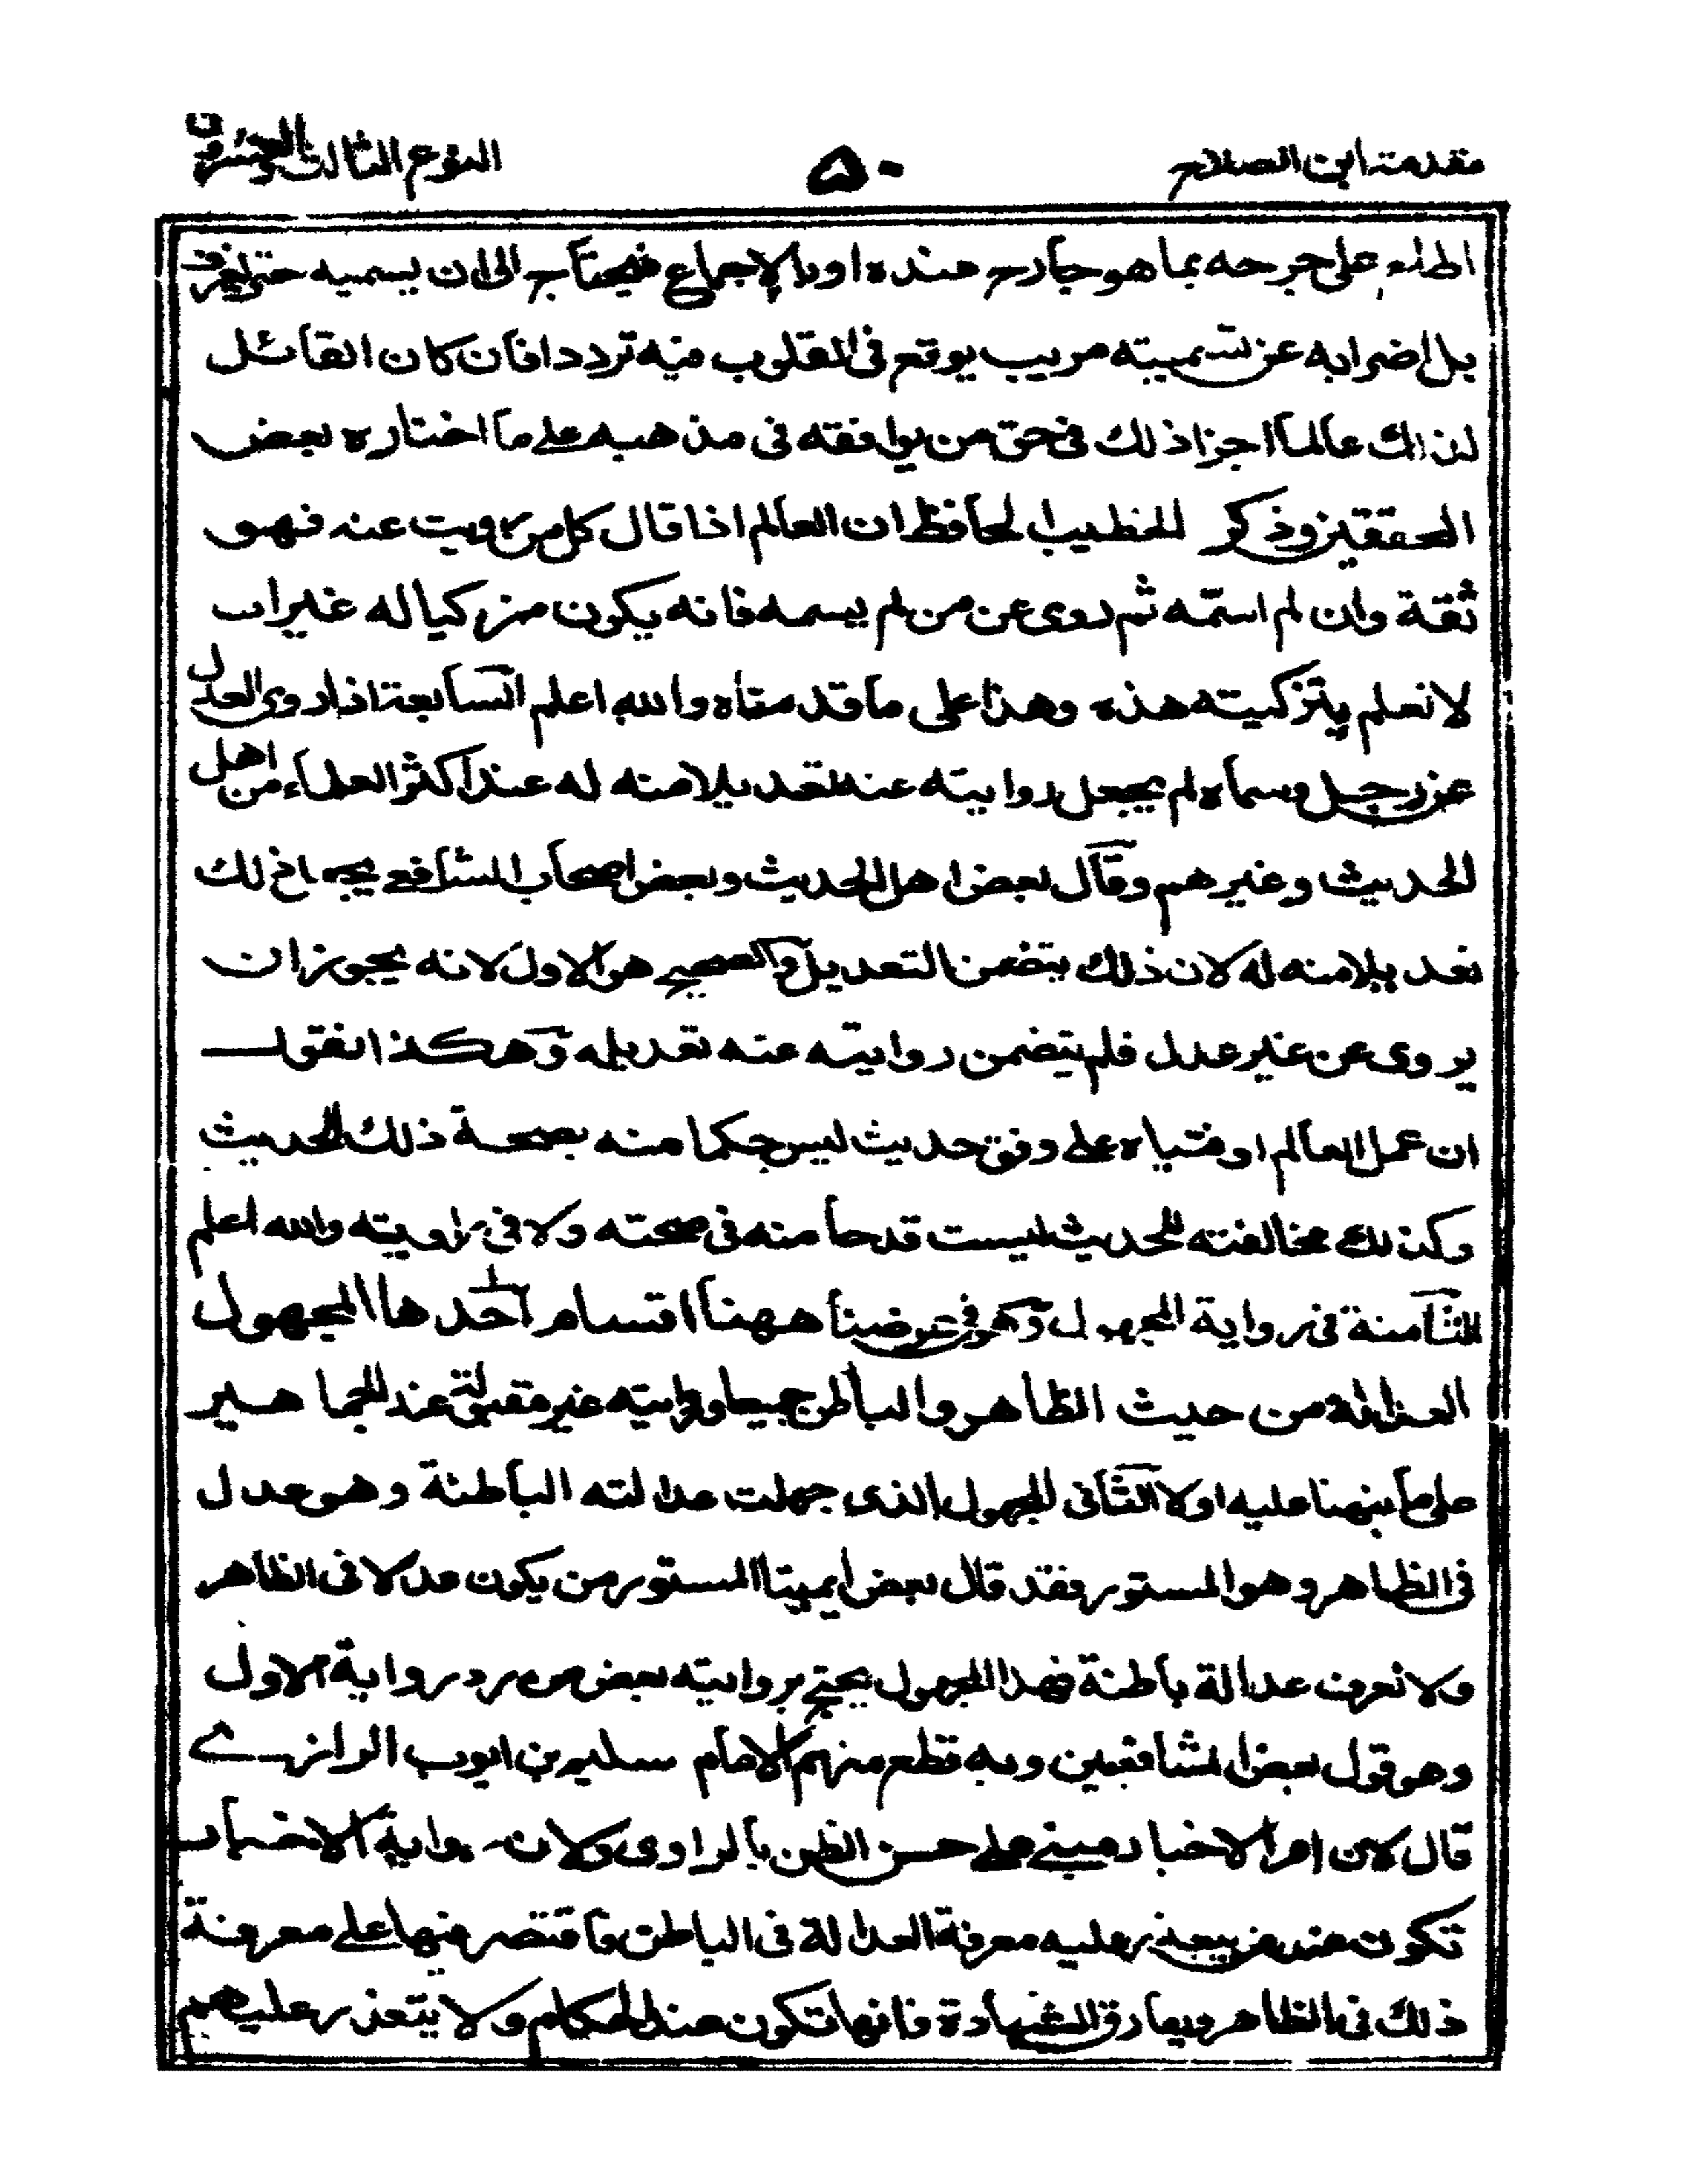 مقدمة ابن الصلاح ٥٠ النوع الثالث والعشرون
اطلع على جرحه بما هو جارح عنده او بالاجماع فيحتاج الى ان يسميه حتى يعرف
بل اضرابه عن تسميته مريب يوقع فى القلوب فيه ترددا فان كان القائل
لذلك عالما اجزا ذلك فى حق من يوافقه فى مذهبه على ما اختاره بعض
المحققين وذكر الخطيب الحافظ ان العالم اذا قال كل من رويت عنه فهو
ثقة وان لم اسمّه ثم روى عن من لم يسمه فانه يكون مزكيا له غير انا
لا نعلم بتزكيته هذه وهذا على ما قدمناه والله اعلم السابعة اذا روى العدل
عن رجل وسماه لم يجعل روايته عنه تعديلا منه له عند اكثر العلماء من اهل
الحديث وغيرهم وقال بعض اهل الحديث وبعض اصحاب الشافعى يجعل ذلك
تعديلا منه له لان ذلك يتضمن التعديل والصحيح هو الاول لانه يجوز ان
يروى عن غير عدل فلم يتضمن روايته عنه تعديله وهكذا نقول
ان عمل العالم او فتياه على وفق حديث ليس حكما منه بصحة ذلك الحديث
وكذلك مخالفته للحديث ليست قدحا منه فى صحته ولا فى راويته والله اعلم
الثامنة فى رواية المجهول وهو فى غرضنا ههنا اقسام احدها المجهول
العدالة من حديث الظاهر والباطن جميعا وروايته غير مقبولة عند الجماهير
على ما نبهنا عليه اولا الثانى المجهول الذى جهلت عدالته الباطنة وهو عدل
فى الظاهر وهو المستور فقد قال بعض ايمتنا المستور من يكون عدلا فى الظاهر
ولا تعرف عدالة باطنة فهذا المجهول يحتج بروايته بعض من رد رواية الاول
وهو قول بعض الشافعيين وبه قطع منهم الامام سليم بن ايوب الرازى
قال لان امر الاخبار مبنى على حسن الظن بالراوى ولان رواية الاخبار
تكون عند من يتعذر عليه معرفة العدالة فى الباطن فاقتصر فيها على معرفة
ذلك فى الظاهر ويفارق الشهادة فانها تكون عند الحكام ولا يتعذر عليهم